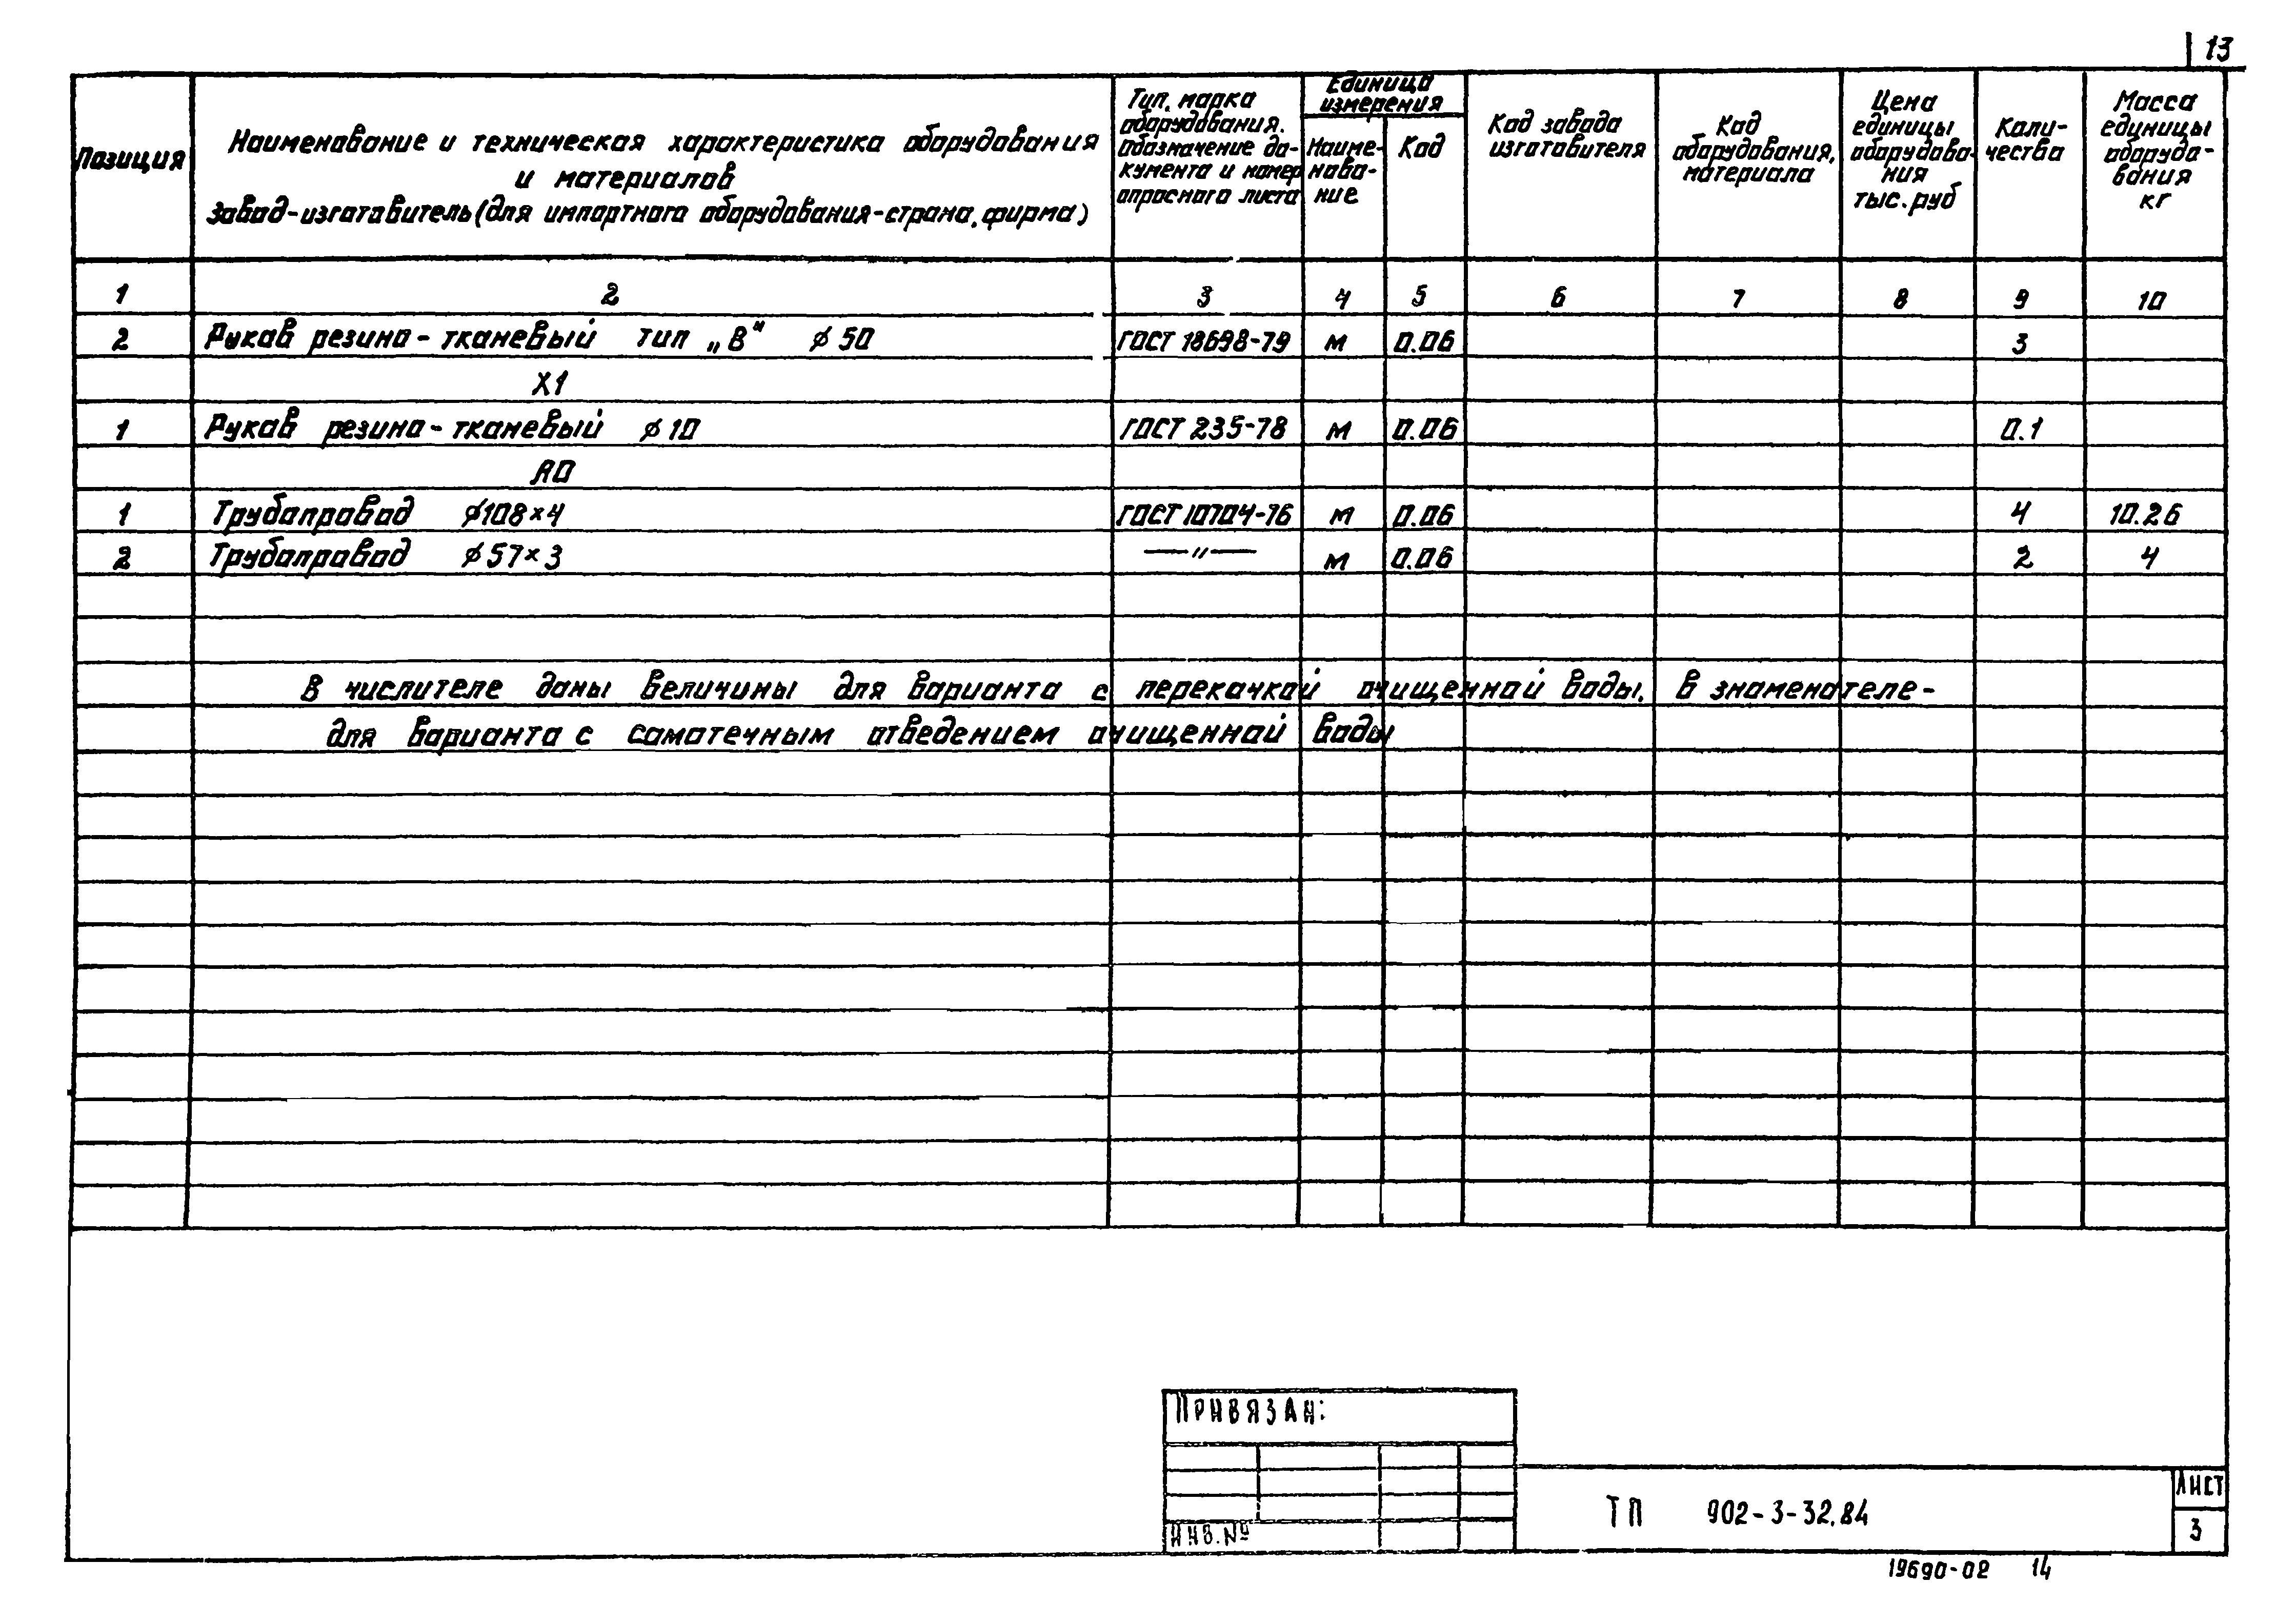 13
Позиция
Наименование и техническая характеристика оборудования
и материалов
завод-изготовитель (для импортного оборудования-страна, фирма)
Тип, марка
оборудования.
Обозначение до-
кумента и номер
опросного листа
Единица
измерения
Наиме-
нова-
ние
Код
Код завода
изготовителя
Код
оборудования,
материала
Цена
единицы
оборудова-
ния
тыс. руб
Коли-
чество
Масса
единицы
оборудо-
вания
кг
1 2 3 4 5 6 7 8 9 10
2 Рукав резино-тканевый тип „В" ⌀50 ГОСТ 18698-79 м 0.06 3
Х1
1 Рукав резино-тканевый ⌀10 ГОСТ 235-78 м 0.06 0.1
А0
1 Трубопровод ⌀108×4 ГОСТ 10704-76 м 0.06 4 10.26
2 Трубопровод ⌀57×3 —"— м 0.06 2 4
В числителе даны величины для варианта с перекачкой очищенной воды. в знаменателе-
для варианта с самотечным отведением очищенной воды
Привязан:
Инв. №
ТП 902-3-32.84
Лист
3
19690-02 14